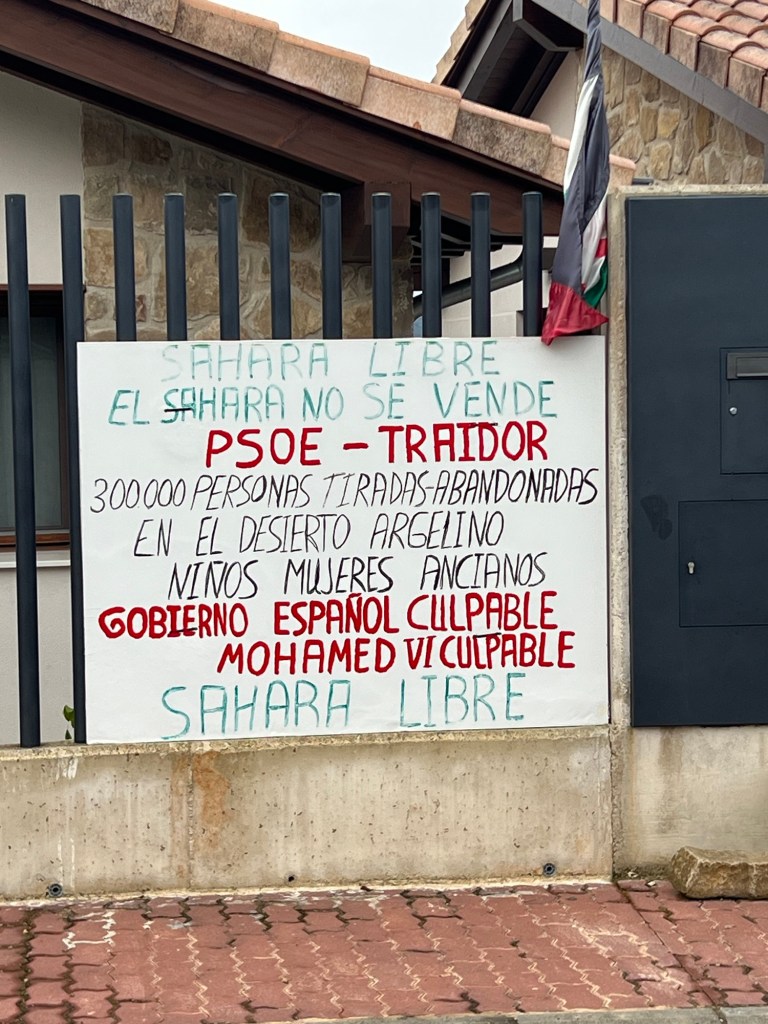 SAHARA LIBRE
EL SAHARA NO SE VENDE
PSOE - TRAIDOR
300.000 PERSONAS TIRADAS-ABANDONADAS
EN EL DESIERTO ARGELINO
NIÑOS MUJERES ANCIANOS
GOBIERNO ESPAÑOL CULPABLE
MOHAMED VI CULPABLE
SAHARA LIBRE